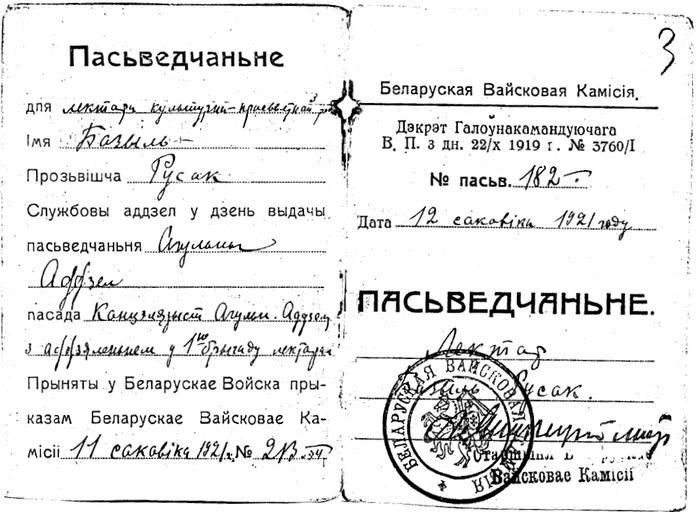 Пасьведчаньне
для лектара культурна-прасветнай
Імя Базыль
Прозьвішча Русак
Службовы аддзел у дзень выдачы
пасьведчаньня Агульны
Аддзел
пасада Канцэлярыст Агульн. Аддзелу
з аддзяленьнем у 1ую брыгаду лектарам
Прыняты у Беларускае Войска пры-
казам Беларускае Вайсковае Ка-
місіі 11 сакавіка 1921 г. №
3
Беларуская Вайсковая Камісія.
Дэкрэт Галоўнакамандуючага
В. П. з дн. 22/х 1919 г. № 3760/I
№ пасьв. 182
Дата 12 сакавіка 1921 году
ПАСЬВЕДЧАНЬНЕ.
Лектар
Базыль Русак.
БЕЛАРУСКАЯ ВАЙСКОВАЯ КАМІСІЯ
Старшыня
Вайсковае Камісіі